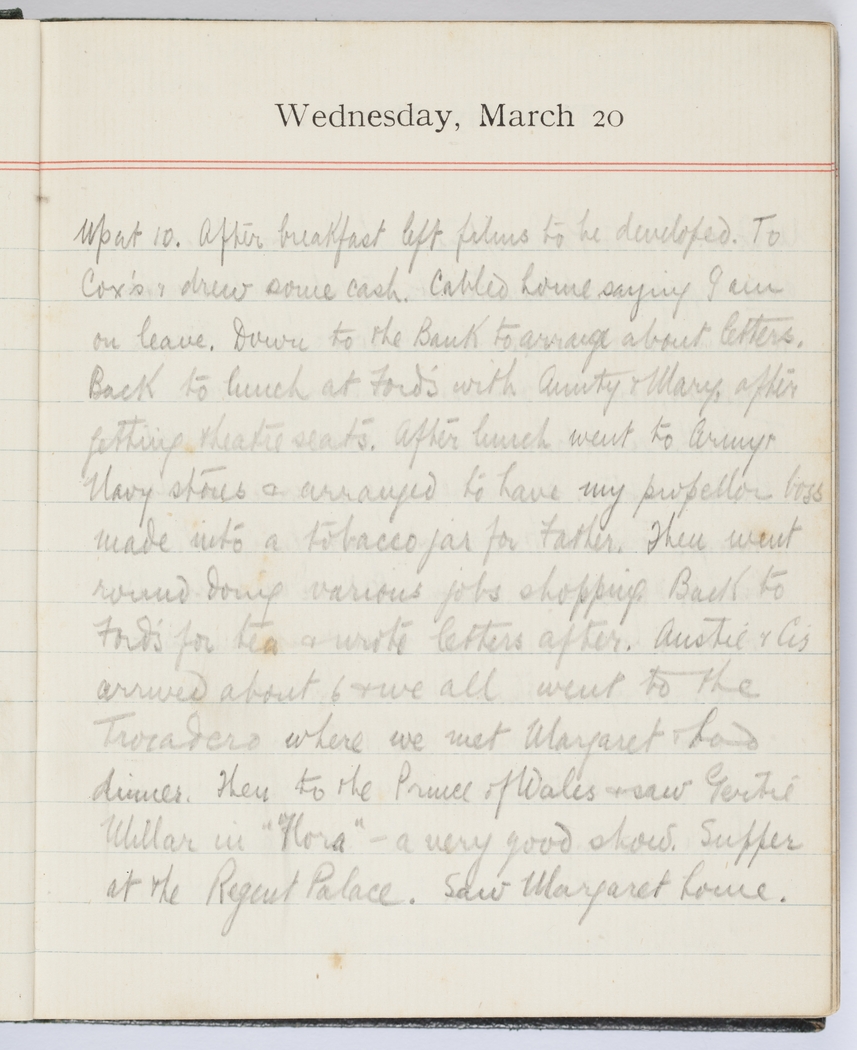 Wednesday, March 20
Up at 10. After breakfast left films to be developed. To
Cox's & drew some cash. Cabled home saying I am
on leave. Down to the Bank to arrange about letters.
Back to lunch at Ford's with Aunty & Mary, after
getting theatre seats. After lunch went to Army &
Navy stores & arranged to have my propellor boss
made into a tobacco jar for Father. Then went
round doing various jobs shopping Back to
Ford's for tea & wrote letters after. Austie & Cis
arrived about 6 & we all went to the
Trocadero where we met Margaret & had
dinner. Then to the Prince of Wales & saw Gertie
Millar in "Flora" - a very good show. Supper
at the Regent Palace. Saw Margaret home.